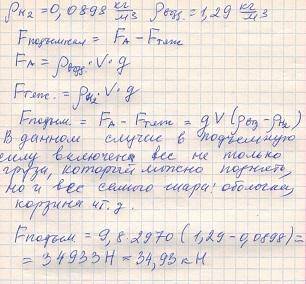 ρH₂ = 0,0898 кг/м3 ρвозд. = 1,29 кг/м3
Fподъемная = FА − Fтяж
FА = ρвозд. · V · g
Fтяж. = ρH₂ · V · g
Fподъем. = FА − Fтяж = gV(ρвоз − ρH₂)
В данном случае в подъемную
силу включена вес не только
груза, который можно поднять,
но и вес самого шара: оболочка,
корзина и т. д.
Fподъем. = 9,8 · 2970 (1,29 − 0,0898) =
= 34933 Н = 34,93 кН